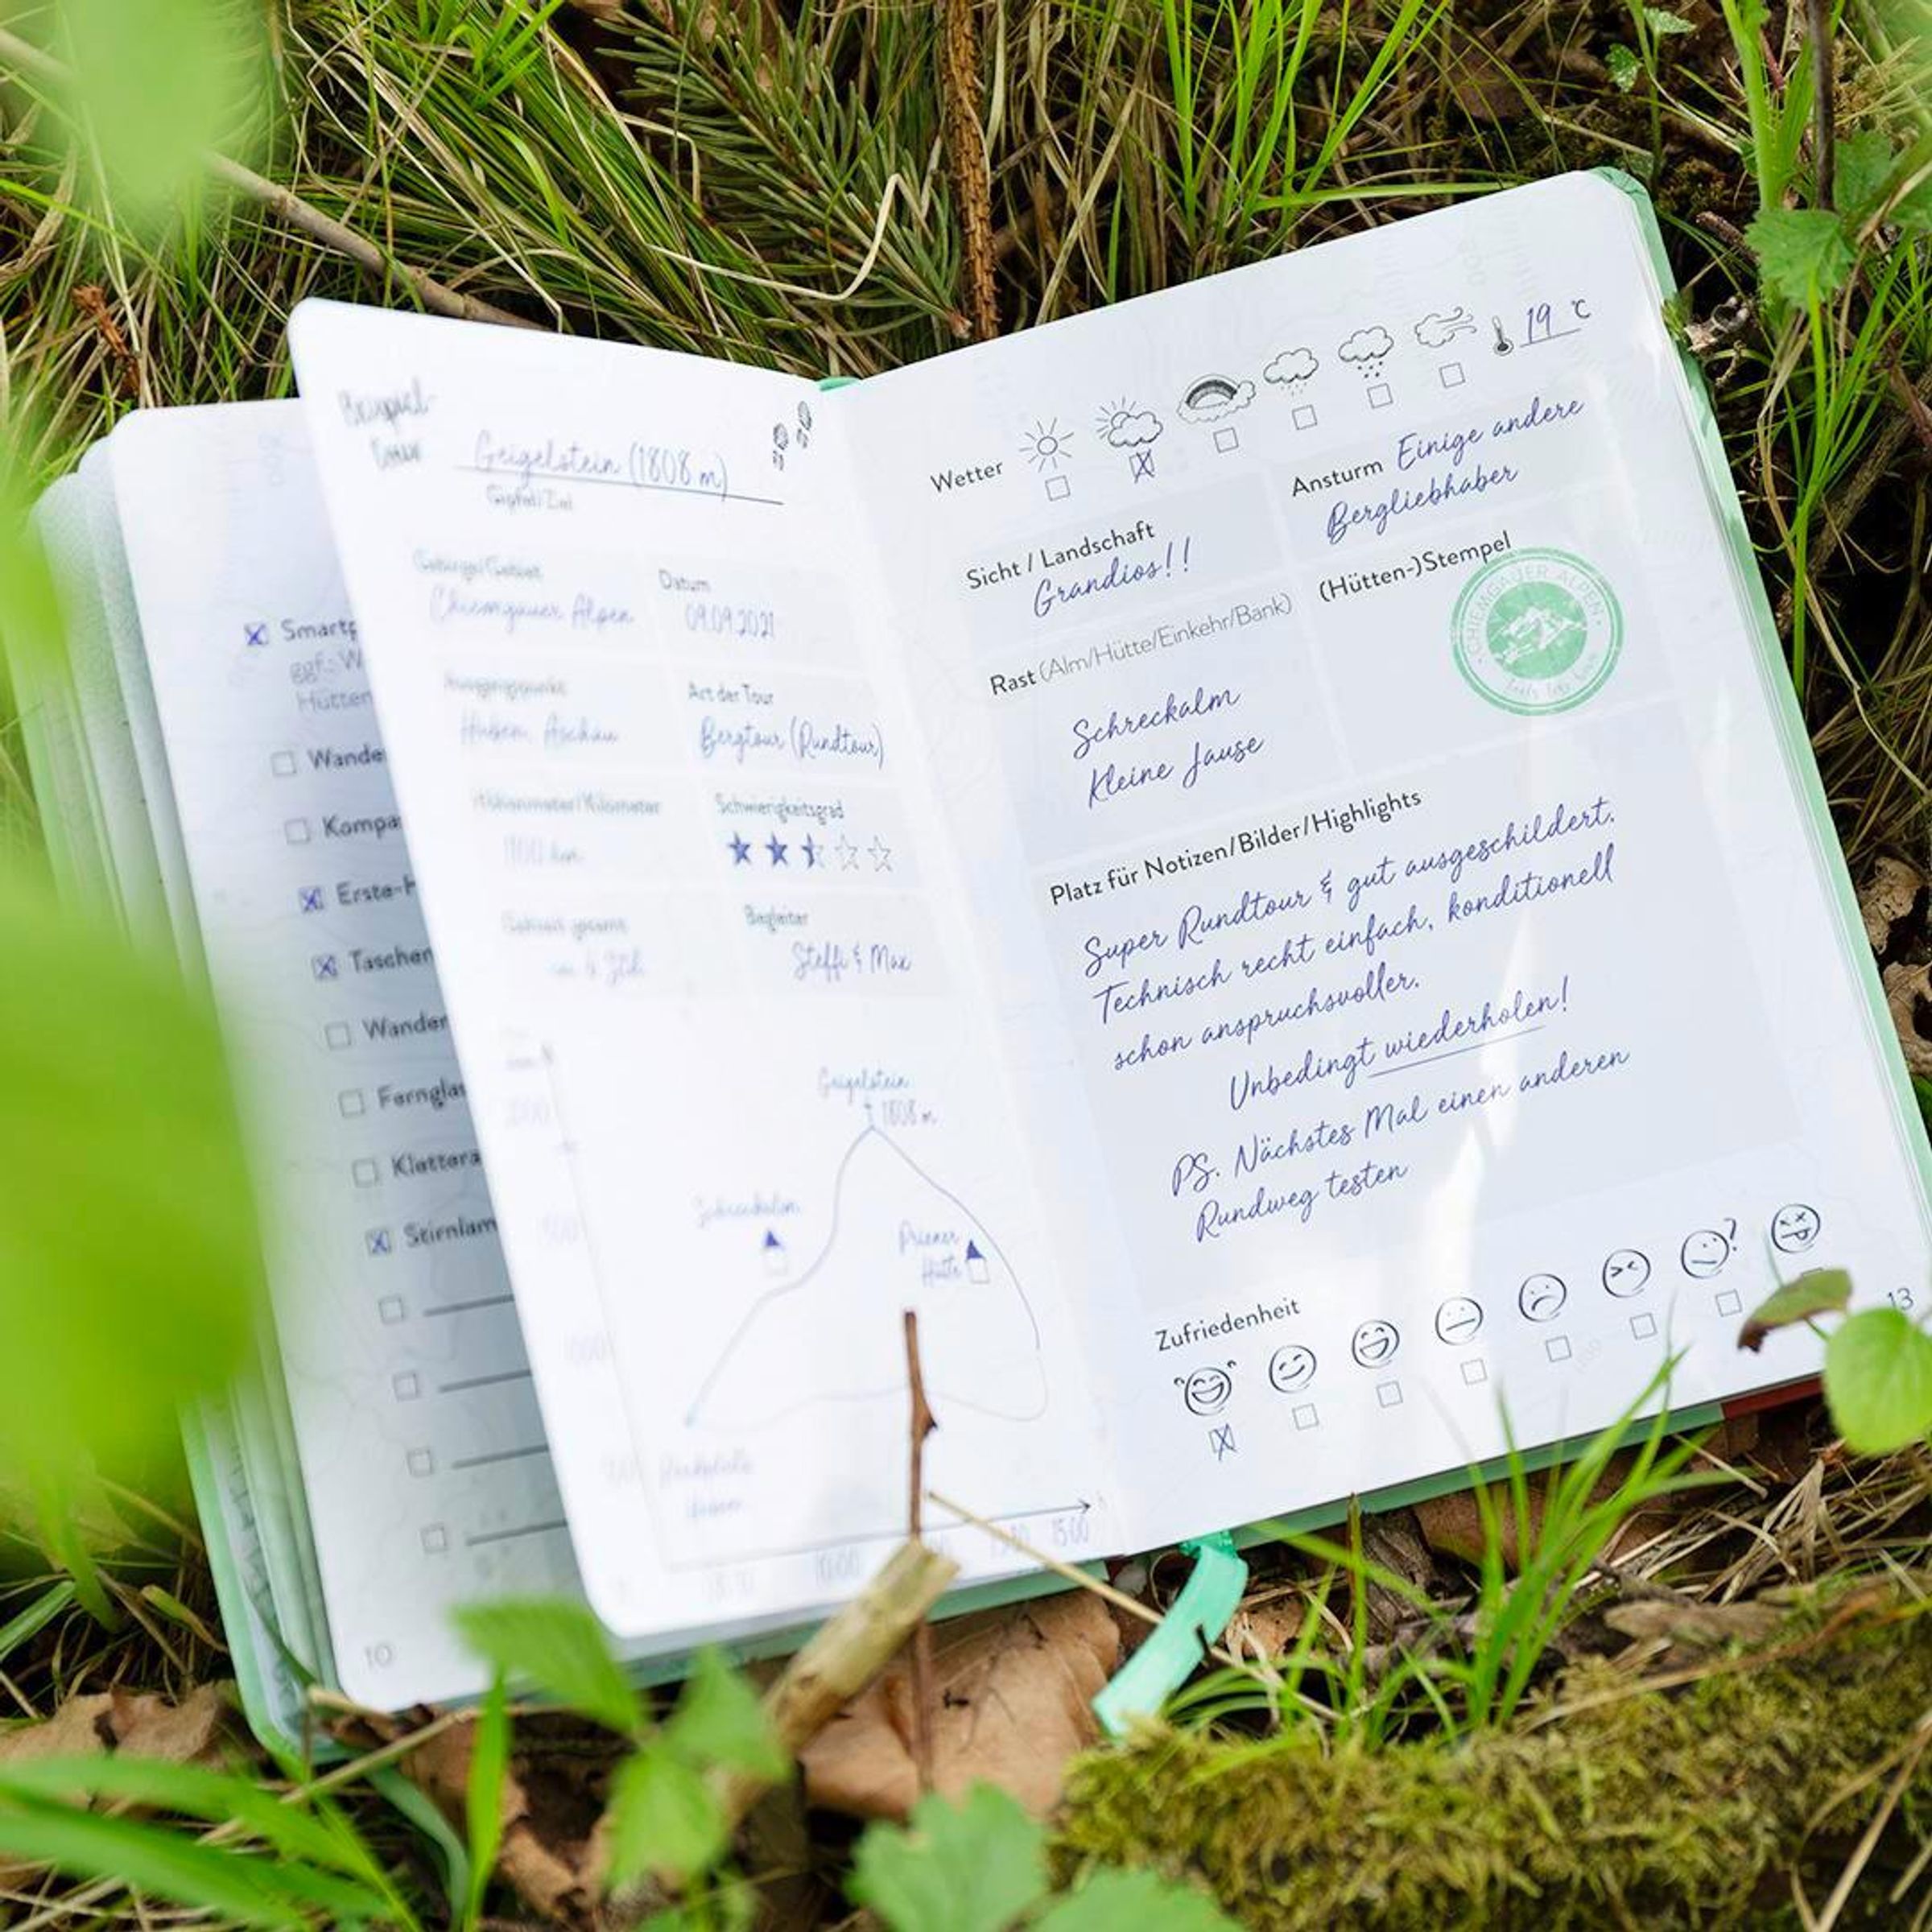 Smartp
ggf.: W
Hütten
Wande
Kompa
Erste-H
Taschen
Wander
Fernglas
Klettera
Stirnlam
10
Beispiel-
Geigelstein (1808 m)
Gipfel/Ziel
Gebirge/Gebiet
Chiemgauer Alpen
Datum
09.09.2021
Ausgangspunkt
Huben, Aschau
Art der Tour
Bergtour (Rundtour)
Höhenmeter/Kilometer
Schwierigkeitsgrad
Gehzeit gesamt
Begleiter
Steffi & Max
Geigelstein
1808 m
Schreckalm
Priener
Hütte
15:00
Wetter
19 °C
Ansturm Einige andere
Bergliebhaber
Sicht / Landschaft
Grandios!!
(Hütten-)Stempel
CHIEMGAUER ALPEN
Rast (Alm/Hütte/Einkehr/Bank)
Schreckalm
Kleine Jause
Platz für Notizen/Bilder/Highlights
Super Rundtour & gut ausgeschildert.
Technisch recht einfach, konditionell
schon anspruchsvoller.
Unbedingt wiederholen!
PS. Nächstes Mal einen anderen
Rundweg testen
Zufriedenheit
13